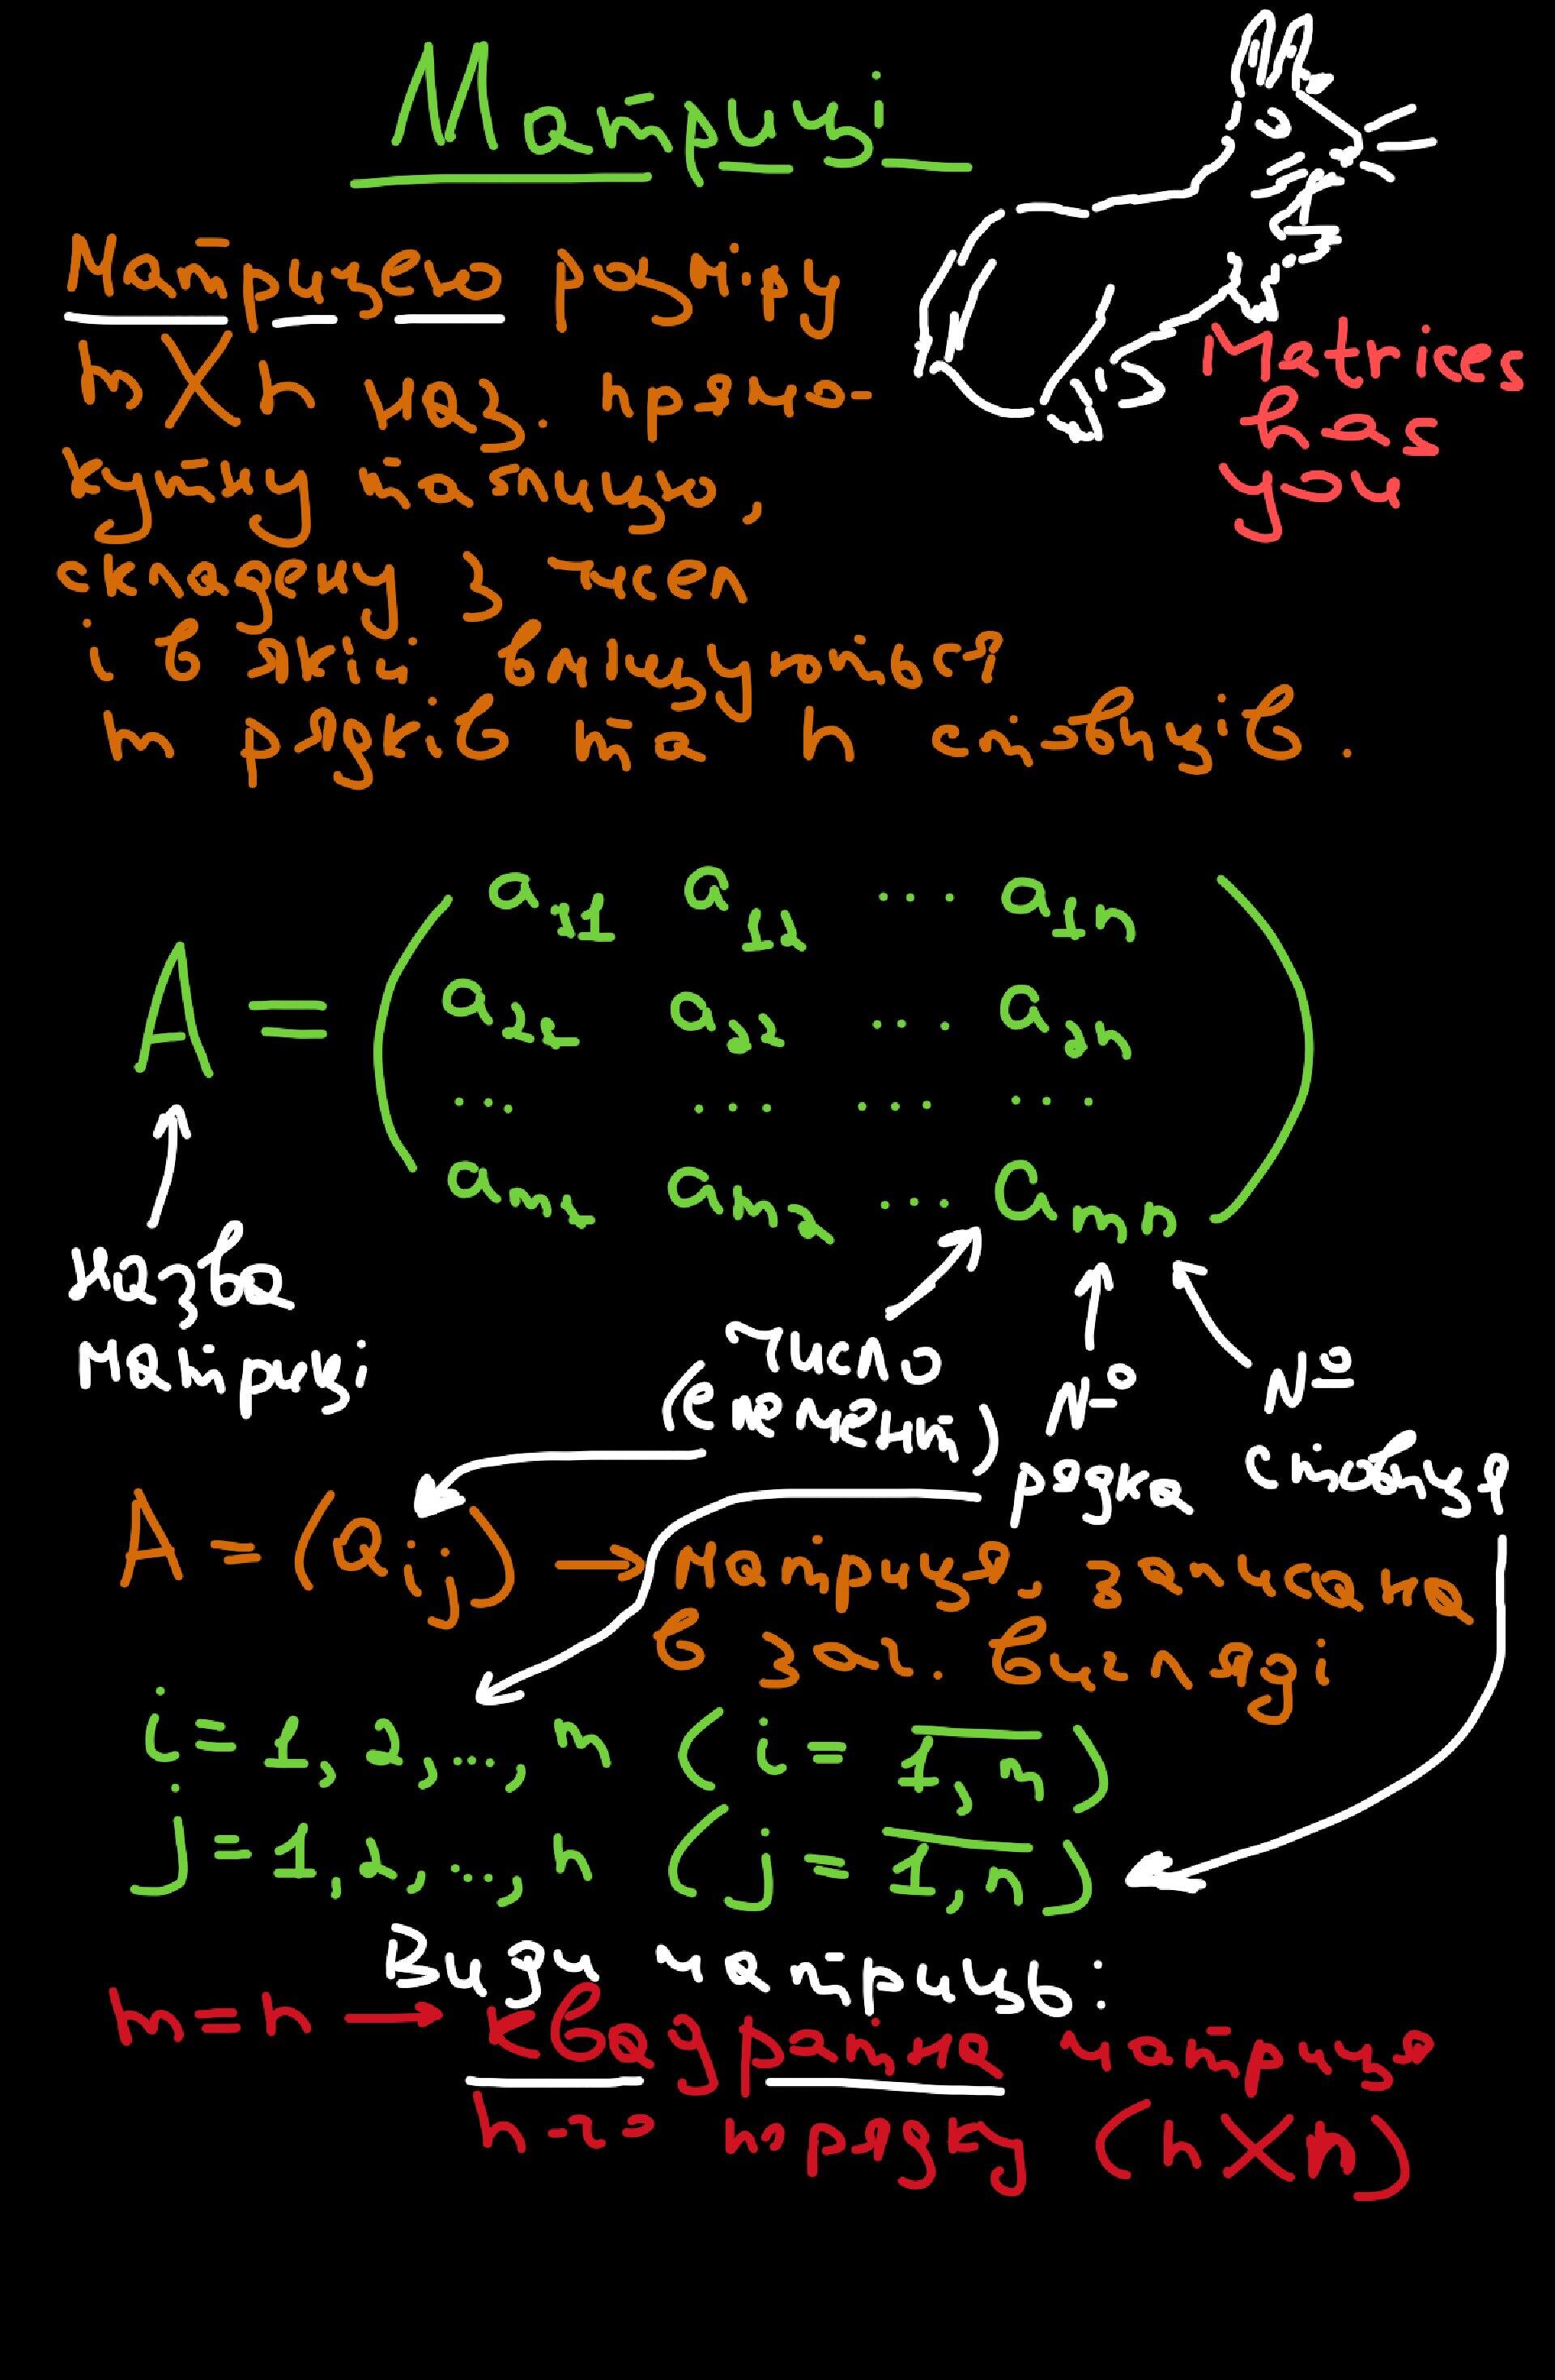 Матриці
Матрицею розміру
m X n наз. прямо-
кутну таблицю,
складену з чисел
і в якій вміщуються
m рядків та n стовпців.
Metrices
has
you
A = ( a11 a12 ... a1n
a21 a22 ... a2n
... ... ... ...
am1 am2 ... amn )
назва
матриці
число
(елемент)
№
рядка
№
стовпця
A = (aij) → матриця, записана
в заг. вигляді
i = 1, 2, ..., m (i = 1, m)
j = 1, 2, ..., n (j = 1, n)
Види матриць:
m = n → квадратна матриця
n-го порядку (n X n)